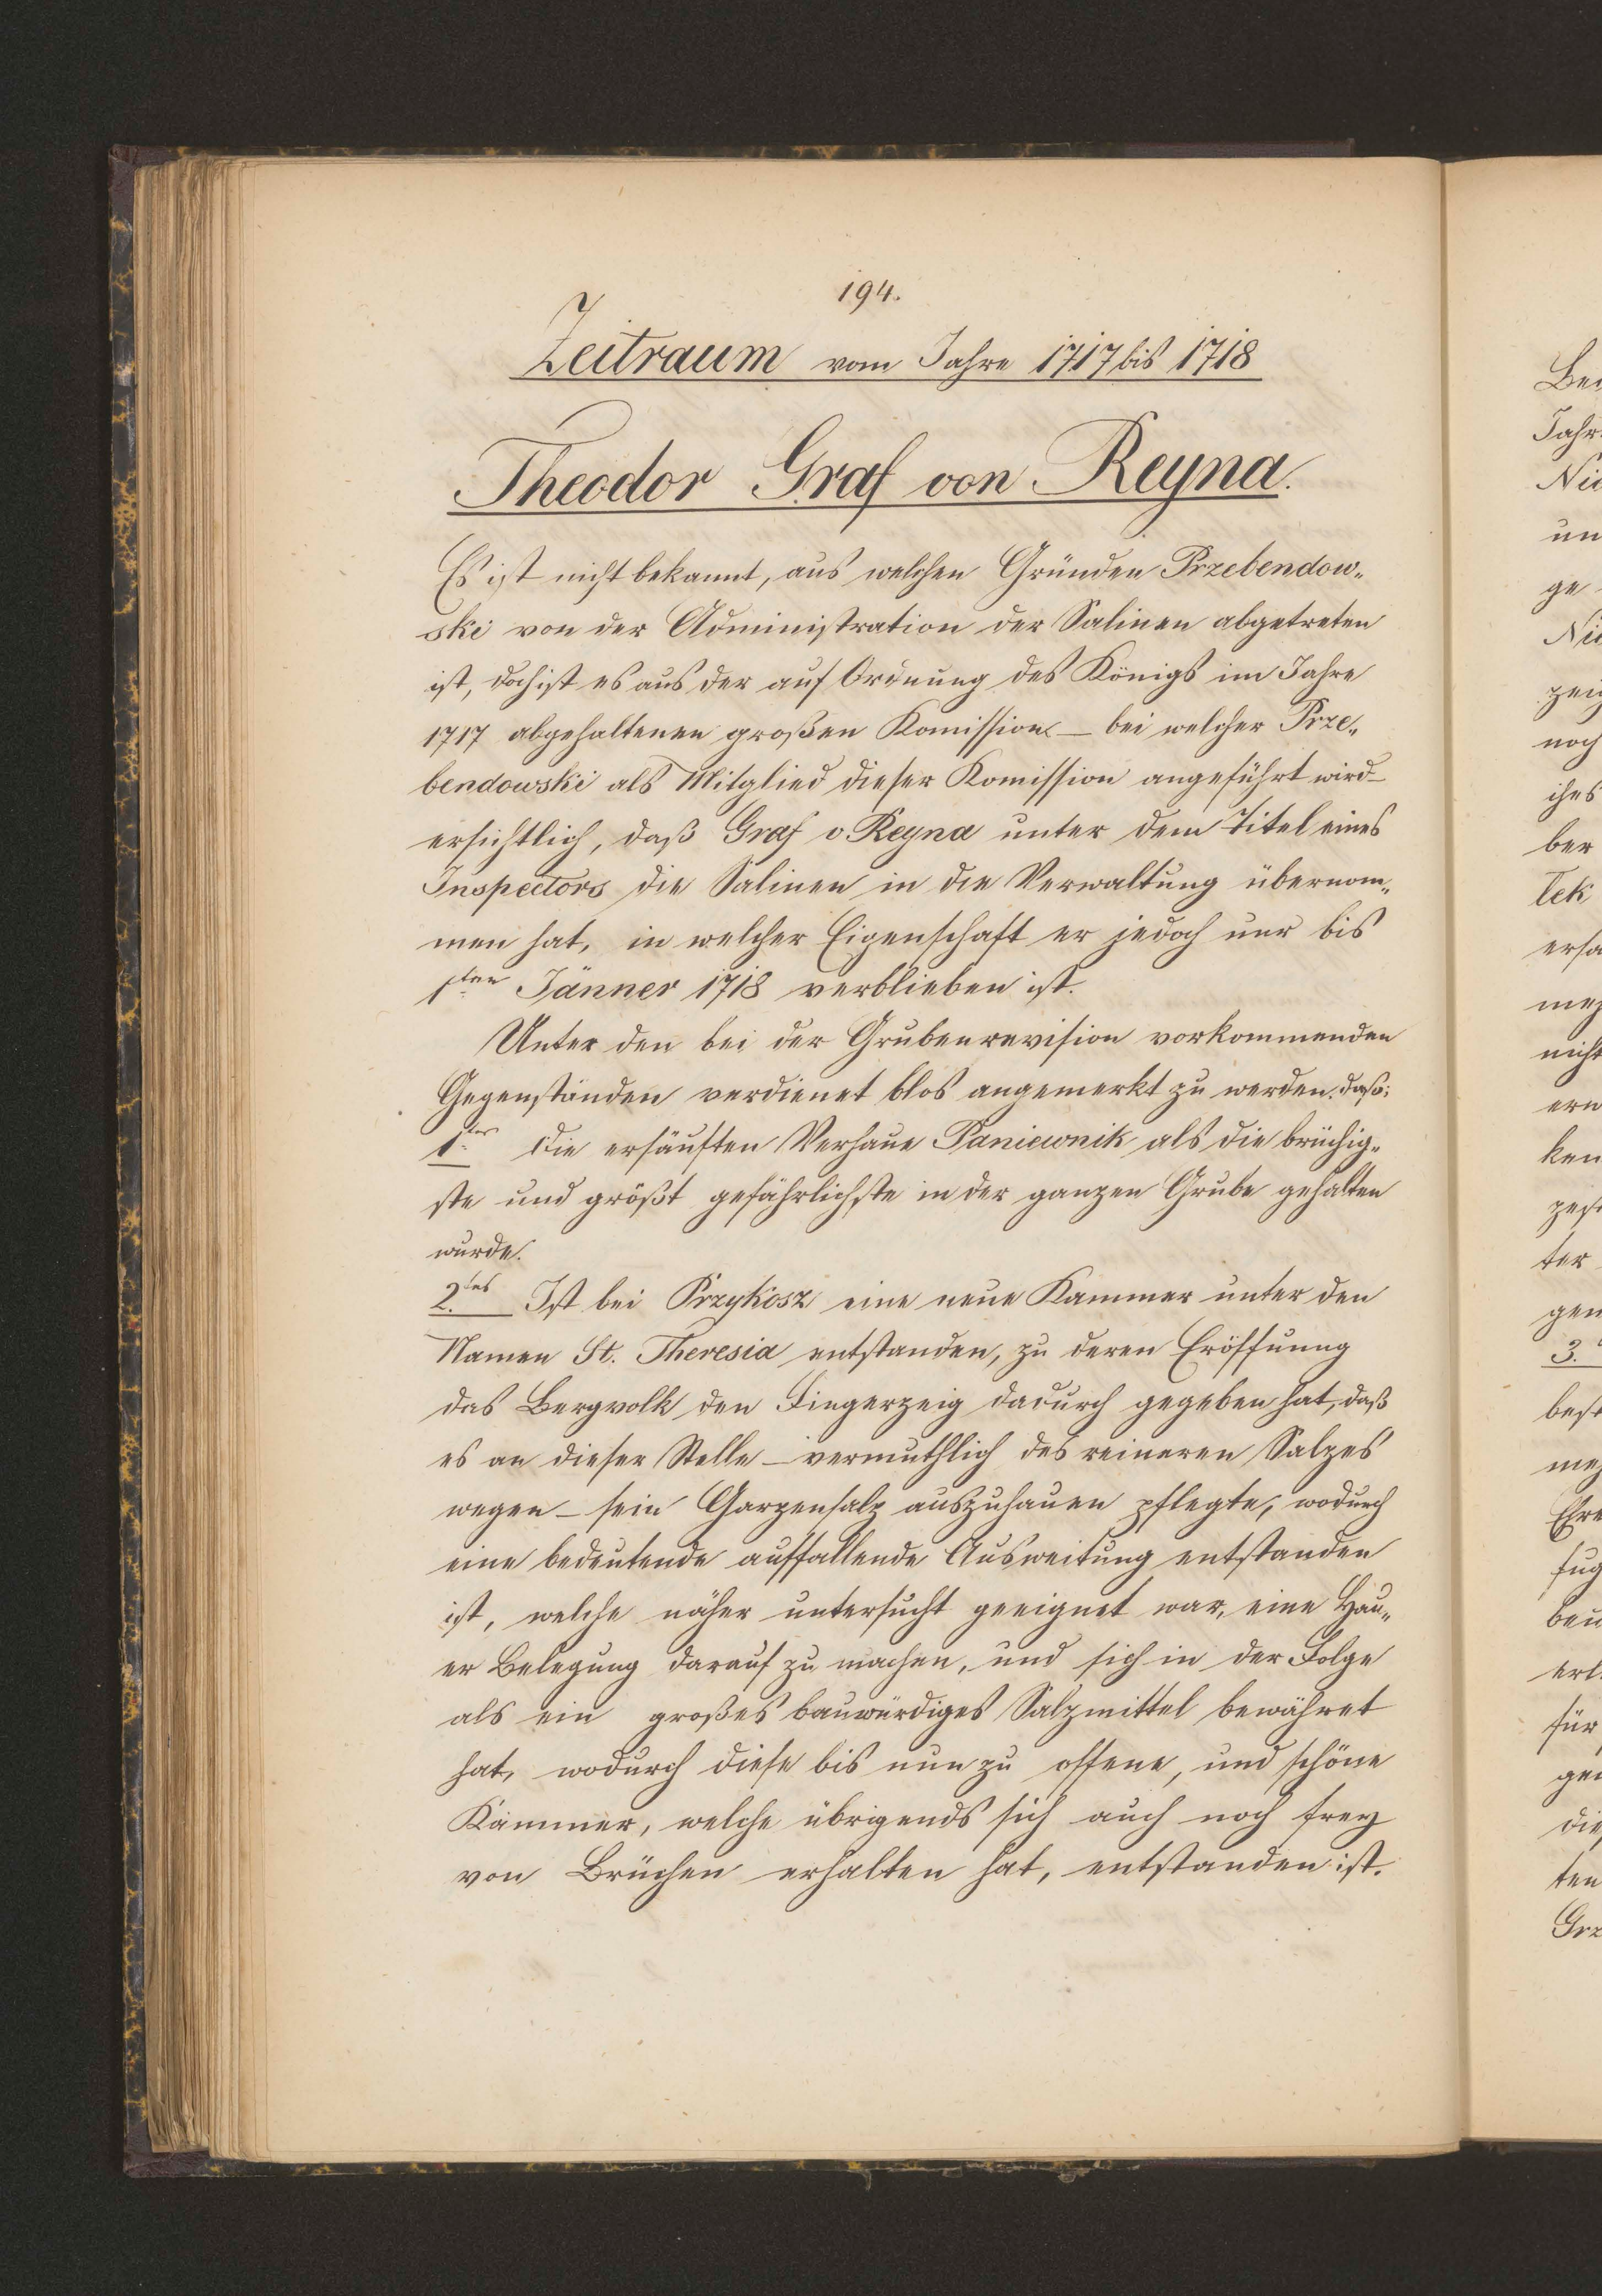 194.
Zeitraum vom Jahre 1717 bis 1718
Theodor Graf von Reyna.
Es ist nicht bekannt, aus welchen Gründen Przebendow„
ski von der Administration der Salinen abgetreten
ist, doch ist es aus der auf Ordnung des Königs im Jahre
1717 abgehaltenen großen Komission – bei welcher Prze„
bendowski als Mitglied dieser Komission angeführt wird –
ersichtlich, daß Graf v. Reyna unter dem Titel eines
Inspectors die Salinen in die Verwaltung übernom„
men hat, in welcher Eigenschaft er jedoch nur bis
1ten Jänner 1718 verblieben ist.
Unter den bei der Grubenrevision vorkommenden
Gegenständen verdienet blos angemerkt zu werden. daß:
1tes die ersäuften Verhaue Paniewnik als die brüchig„
ste und größt gefährlichste in der ganzen Grube gehalten
wurde.
2.tes Ist bei Przykosz eine neue Kammer unter den
Namen St. Theresia entstanden, zu deren Eröffnung
das Bergvolk den Fingerzeig dadurch gegeben hat, daß
es an dieser Stelle – vermuthlich des reineren Salzes
wegen – sein Garzensalz auszuhauen pflegte, wodurch
eine bedeutende auffallende Ausweitung entstanden
ist, welche näher untersucht geeignet war, eine Hau„
er Belegung darauf zu machen, und sich in der Folge
als ein großes bauwürdiges Salzmittel bewähret
hat, wodurch diese bis nun zu offene, und schöne
Kammer, welche übrigends sich auch noch frey
von Brüchen erhalten hat, entstanden ist.
Jahr
un
ge
noch
ber
nicht
ken
ter
gen
3.
für
ten